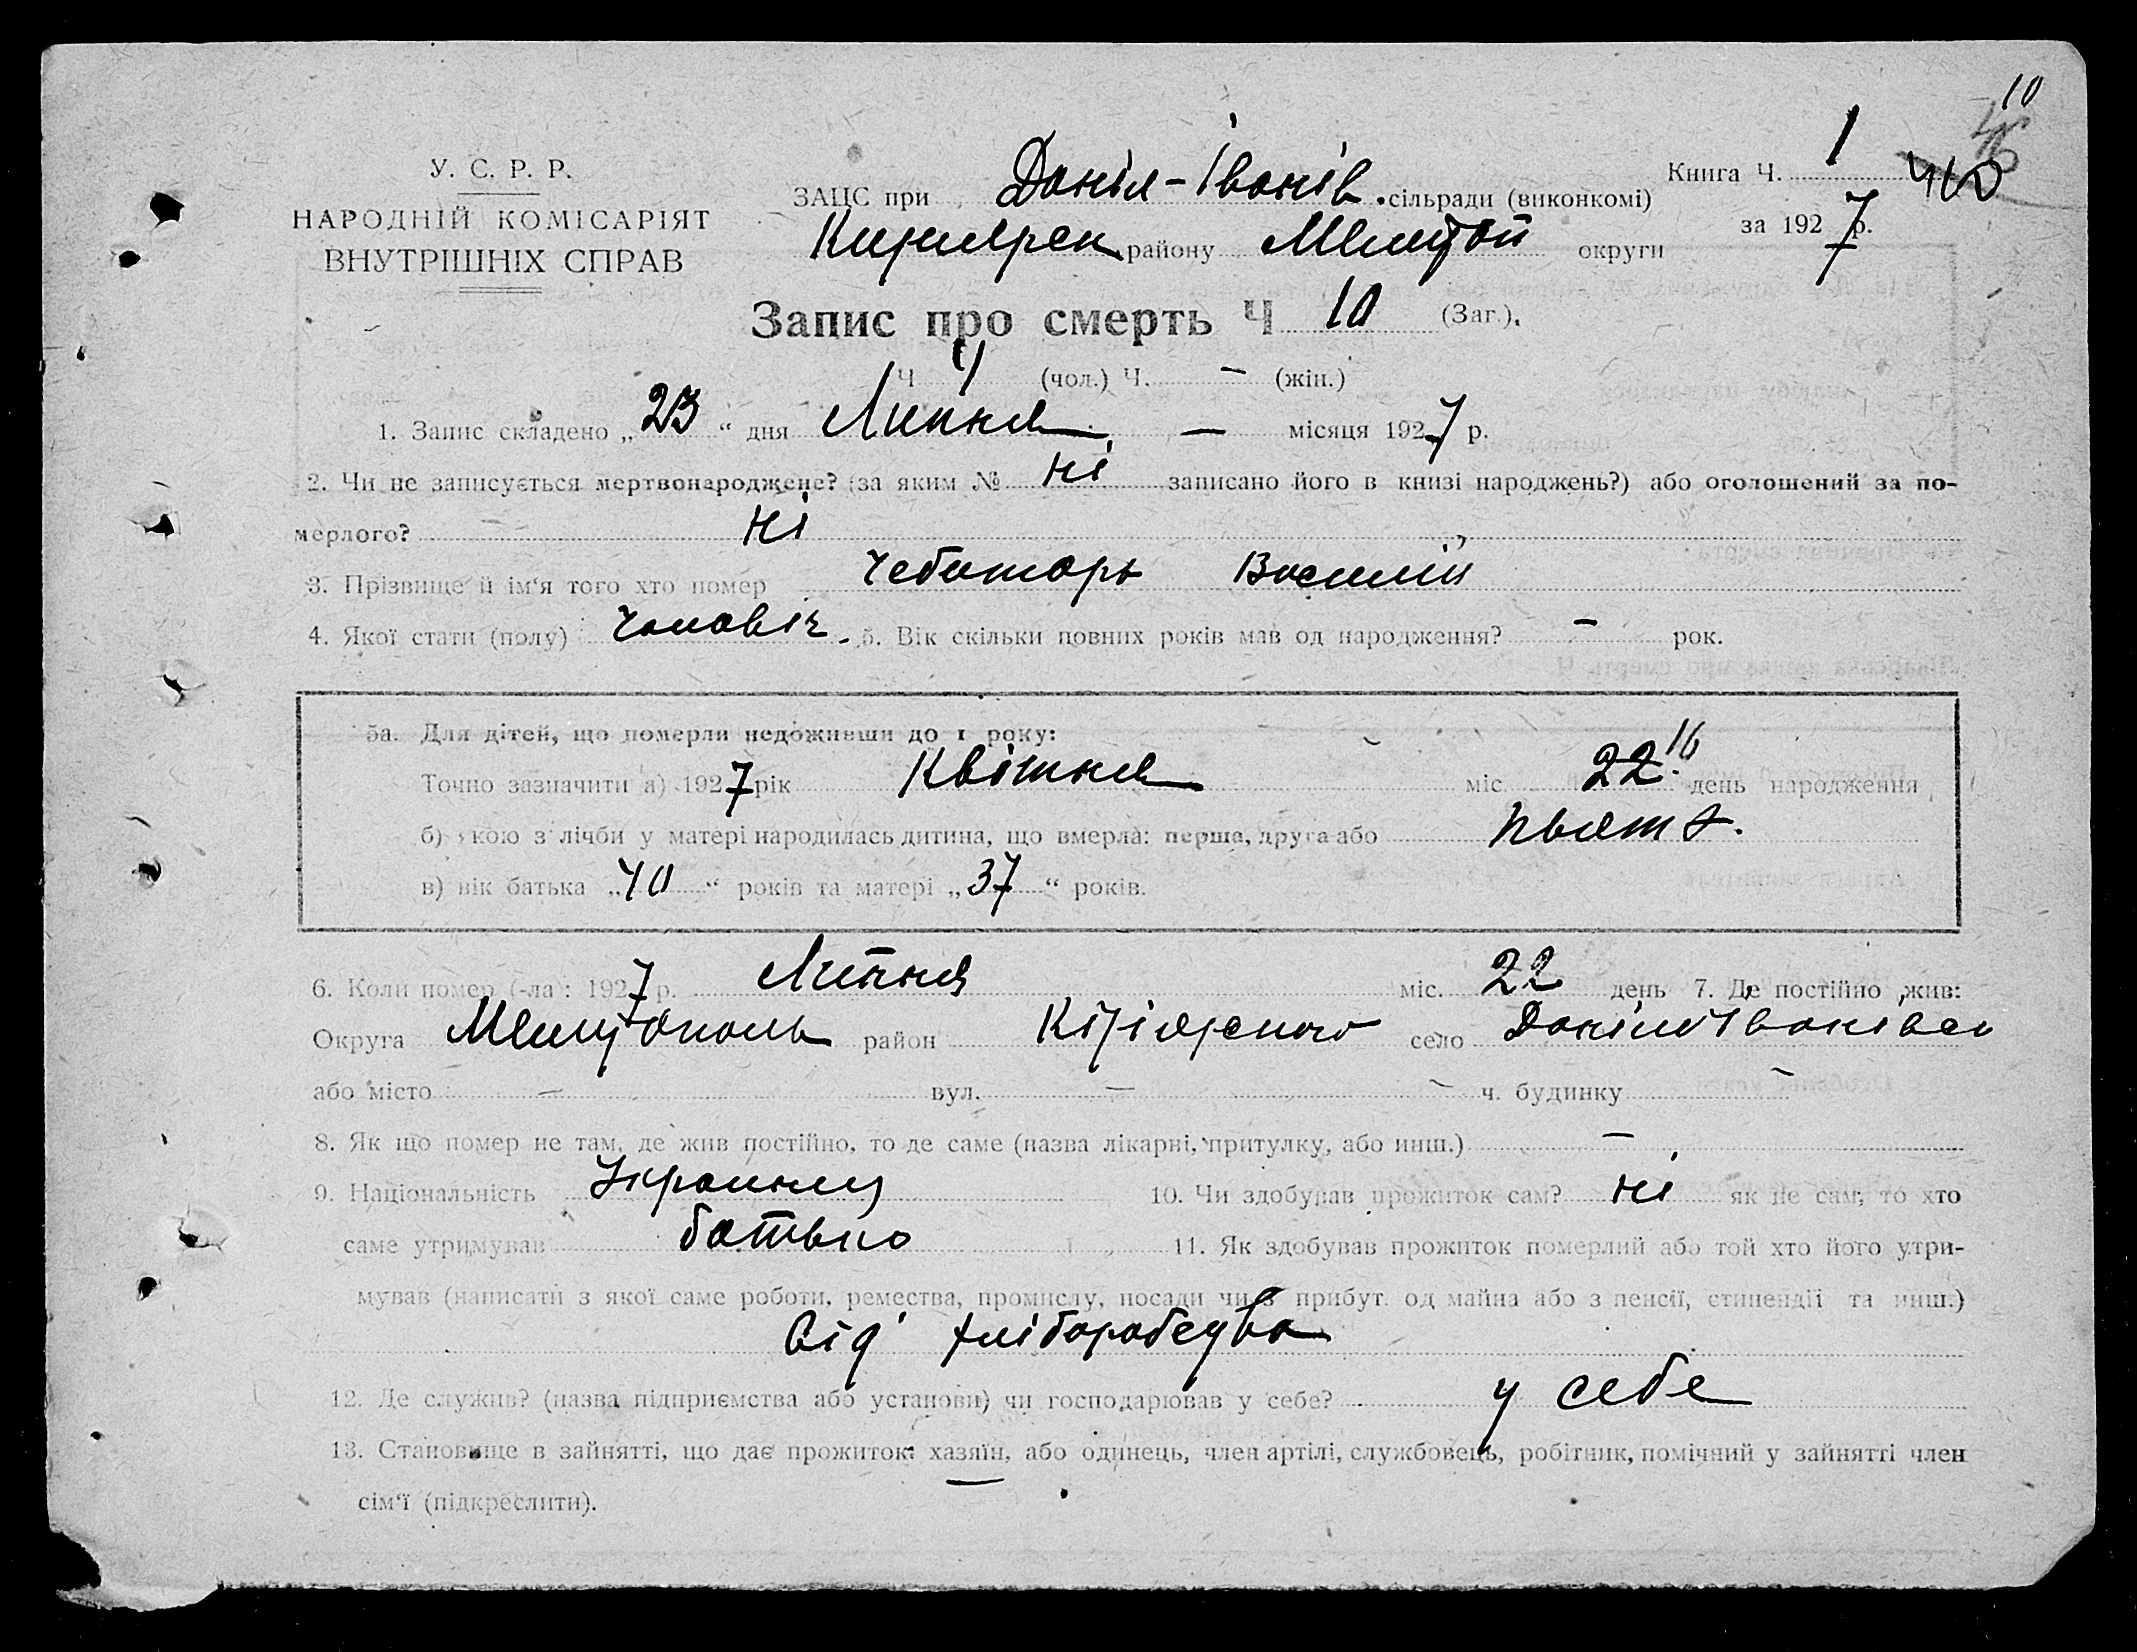 10
У. С. Р. Р.
НАРОДНІЙ КОМІСАРІЯТ
ВНУТРІШНІХ СПРАВ
ЗАЦС при Даніл-Іванів. сільради (виконкомі)
Книга Ч. 1
району Мелітоп округи
за 1927 р.
Запис про смерть Ч 10 (Заг.).
Ч 4 (чол.) Ч. — (жін.)
1. Запис складено „23“ дня Липня — місяця 1927 р.
2. Чи не записується мертвонароджене? (за яким № ні записано його в книзі народжень?) або оголошений за по-
мерлого? ні
3. Прізвище й ім'я того хто помер Чеботарь Василій
4. Якої стати (полу) Чоловіч. 5. Вік скільки повних років мав од народження? — рок.
5а. Для дітей, що померли недоживши до 1 року:
Точно зазначити а) 1927 рік Квітня міс. 22 день народження
б) якою з лічби у матері народилась дитина, що вмерла: перша, друга або пьята.
в) вік батька „40“ років та матері „37“ років.
6. Коли помер (-ла): 1927 р. Липня міс. 22 день 7. Де постійно жив:
Округа Мелітополь район село Даніло Іванівка
або місто — вул. — ч. будинку —
8. Як що помер не там, де жив постійно, то де саме (назва лікарні, притулку, або инш.) —
9. Національність Українец 10. Чи здобував прожиток сам? ні як не сам, то хто
саме утримував батько 11. Як здобував прожиток померлий або той хто його утри-
мував (написати з якої саме роботи, ремества, промислу, посади чи з прибут. од майна або з пенсії, стипендії та инш.)
Від хліборобства
12. Де служив? (назва підприємства або установи) чи господарював у себе? у себе
13. Становище в зайнятті, що дає прожиток: хазяїн, або одинець, член артілі, службовець, робітник, помічний у зайнятті член
сім'ї (підкреслити). —